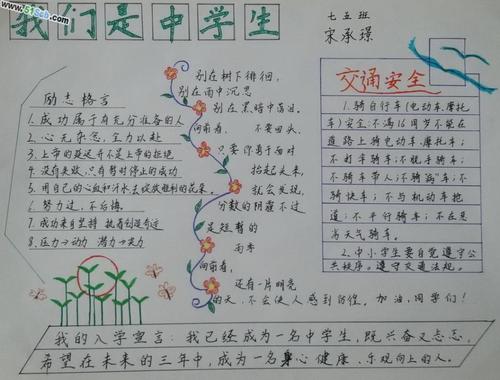 我们是中学生
www.51Seb.com
七五班
宋承璟
励志格言
1.成功属于有充分准备的人
2.心无杂念,全力以赴
3.上帝的延迟不是上帝的拒绝
4.没有失败,只有暂时停止的成功
5.用自己的心血和汗水去绽放胜利的花朵。
6.努力过,不后悔。
7.成功来自坚持 执着创造奇迹
8.压力→动力 潜力→实力
别在树下徘徊,
别在雨中沉思
别在黑暗中落泪。
向前看, 不要回头,
只要你勇于面对
抬起头来,
就会发现,
分数的阴霾不过
是短暂的
雨季
向前看,
还有一片明亮
的天,不会使人感到彷徨。加油,同学们!
交通安全
1.骑自行车(电动车.摩托
车)安全:不满16周岁不能在
道路上骑电动车.摩托车;
不打伞骑车;不脱手骑车;
不骑车带人;不骑"病"车;不
骑快车;不与机动车抢
道;不平行骑车;不在恶
劣天气骑车。
2.中小学生要自觉遵守公
共秩序。遵守交通法规。
我的入学宣言:我已经成为一名中学生,既兴奋又忐忑,
希望在未来的三年中,成为一名身心健康、乐观向上的人。